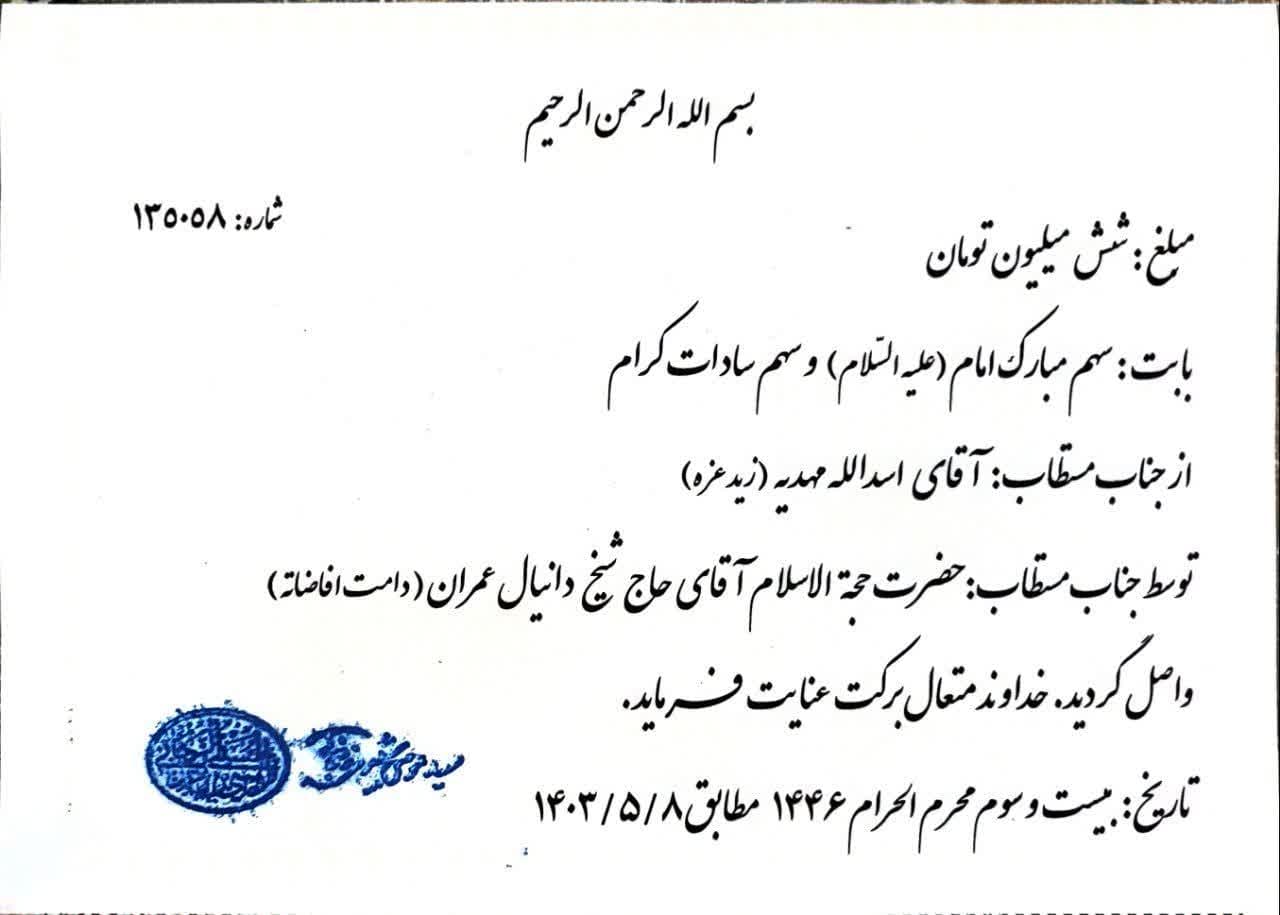 بسم الله الرحمن الرحیم
شماره: ۱۳۵۰۵۸
مبلغ: شش میلیون تومان
بابت: سهم مبارک امام (علیه السّلام) و سهم سادات کرام
از جناب مستطاب: آقای اسدالله مهدیه (زید عزه)
توسط جناب مستطاب: حضرت حجة الاسلام آقای حاج شیخ دانیال عمران (دامت افاضاته)
واصل گردید. خداوند متعال برکت عنایت فـرماید.
تاریخ: بیست و سوم محرم الحرام ۱۴۴۶ مطابق ۱۴۰۳/۵/۸